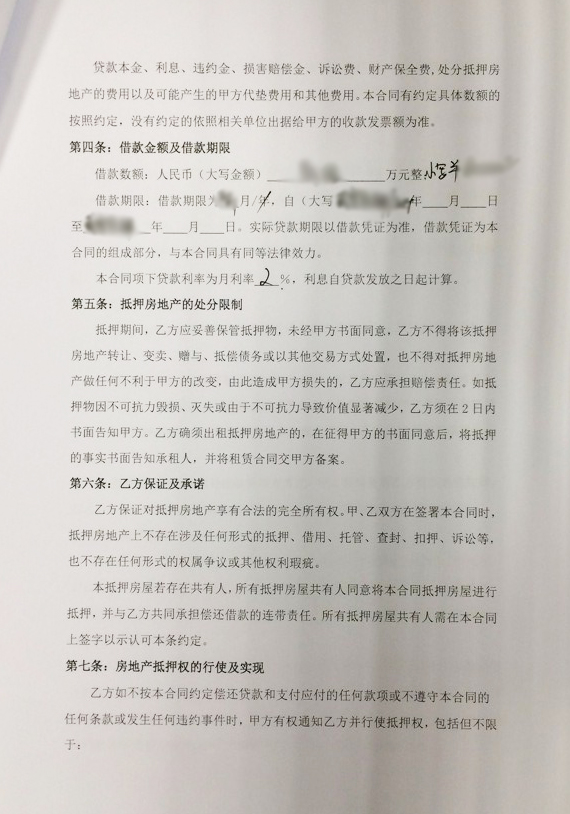 贷款本金、利息、违约金、损害赔偿金、诉讼费、财产保全费,处分抵押房
地产的费用以及可能产生的甲方代垫费用和其他费用。本合同有约定具体数额的
按照约定，没有约定的依照相关单位出据给甲方的收款发票额为准。
第四条：借款金额及借款期限
借款数额：人民币（大写金额）______万元整
借款期限：借款期限为 月/年，自（大写 年___月___日
至 _年___月___日。实际贷款期限以借款凭证为准，借款凭证为本
合同的组成部分，与本合同具有同等法律效力。
本合同项下贷款利率为月利率 2 %，利息自贷款发放之日起计算。
第五条：抵押房地产的处分限制
抵押期间，乙方应妥善保管抵押物，未经甲方书面同意，乙方不得将该抵押
房地产转让、变卖、赠与、抵偿债务或以其他交易方式处置，也不得对抵押房地
产做任何不利于甲方的改变，由此造成甲方损失的，乙方应承担赔偿责任。如抵
押物因不可抗力毁损、灭失或由于不可抗力导致价值显著减少，乙方须在 2 日内
书面告知甲方。乙方确须出租抵押房地产的，在征得甲方的书面同意后，将抵押
的事实书面告知承租人，并将租赁合同交甲方备案。
第六条：乙方保证及承诺
乙方保证对抵押房地产享有合法的完全所有权。甲、乙双方在签署本合同时，
抵押房地产上不存在涉及任何形式的抵押、借用、托管、查封、扣押、诉讼等，
也不存在任何形式的权属争议或其他权利瑕疵。
本抵押房屋若存在共有人，所有抵押房屋共有人同意将本合同抵押房屋进行
抵押，并与乙方共同承担偿还借款的连带责任。所有抵押房屋共有人需在本合同
上签字以示认可本条约定。
第七条：房地产抵押权的行使及实现
乙方如不按本合同约定偿还贷款和支付应付的任何款项或不遵守本合同的
任何条款或发生任何违约事件时，甲方有权通知乙方并行使抵押权，包括但不限
于：